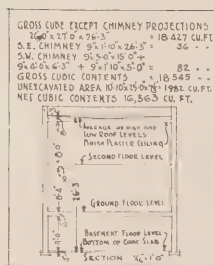 GROSS CUBE EXCEPT CHIMNEY PROJECTIONS
26'0" x 27'0" x 26'-3" = 18427 CU.FT.
S.E. CHIMNEY 9" x 1'-10" x 26'-3" = 36 " "
S.W. CHIMNEY 9" x 5'-0" x 15'-0" +
= 82 " "
GROSS CUBIC CONTENTS 18545 " "
UNEXCAVATED AREA 1982 CU.FT.
NET CUBIC CONTENTS 16,563 CU. FT.
AVERAGE OF HIGH AND
LOW ROOF LEVELS
FINISH PLASTER CEILING
SECOND FLOOR LEVEL
26'-3"
GROUND FLOOR LEVEL
BASEMENT FLOOR LEVEL
BOTTOM OF CONC SLAB
SECTION 1/16"=1'-0"